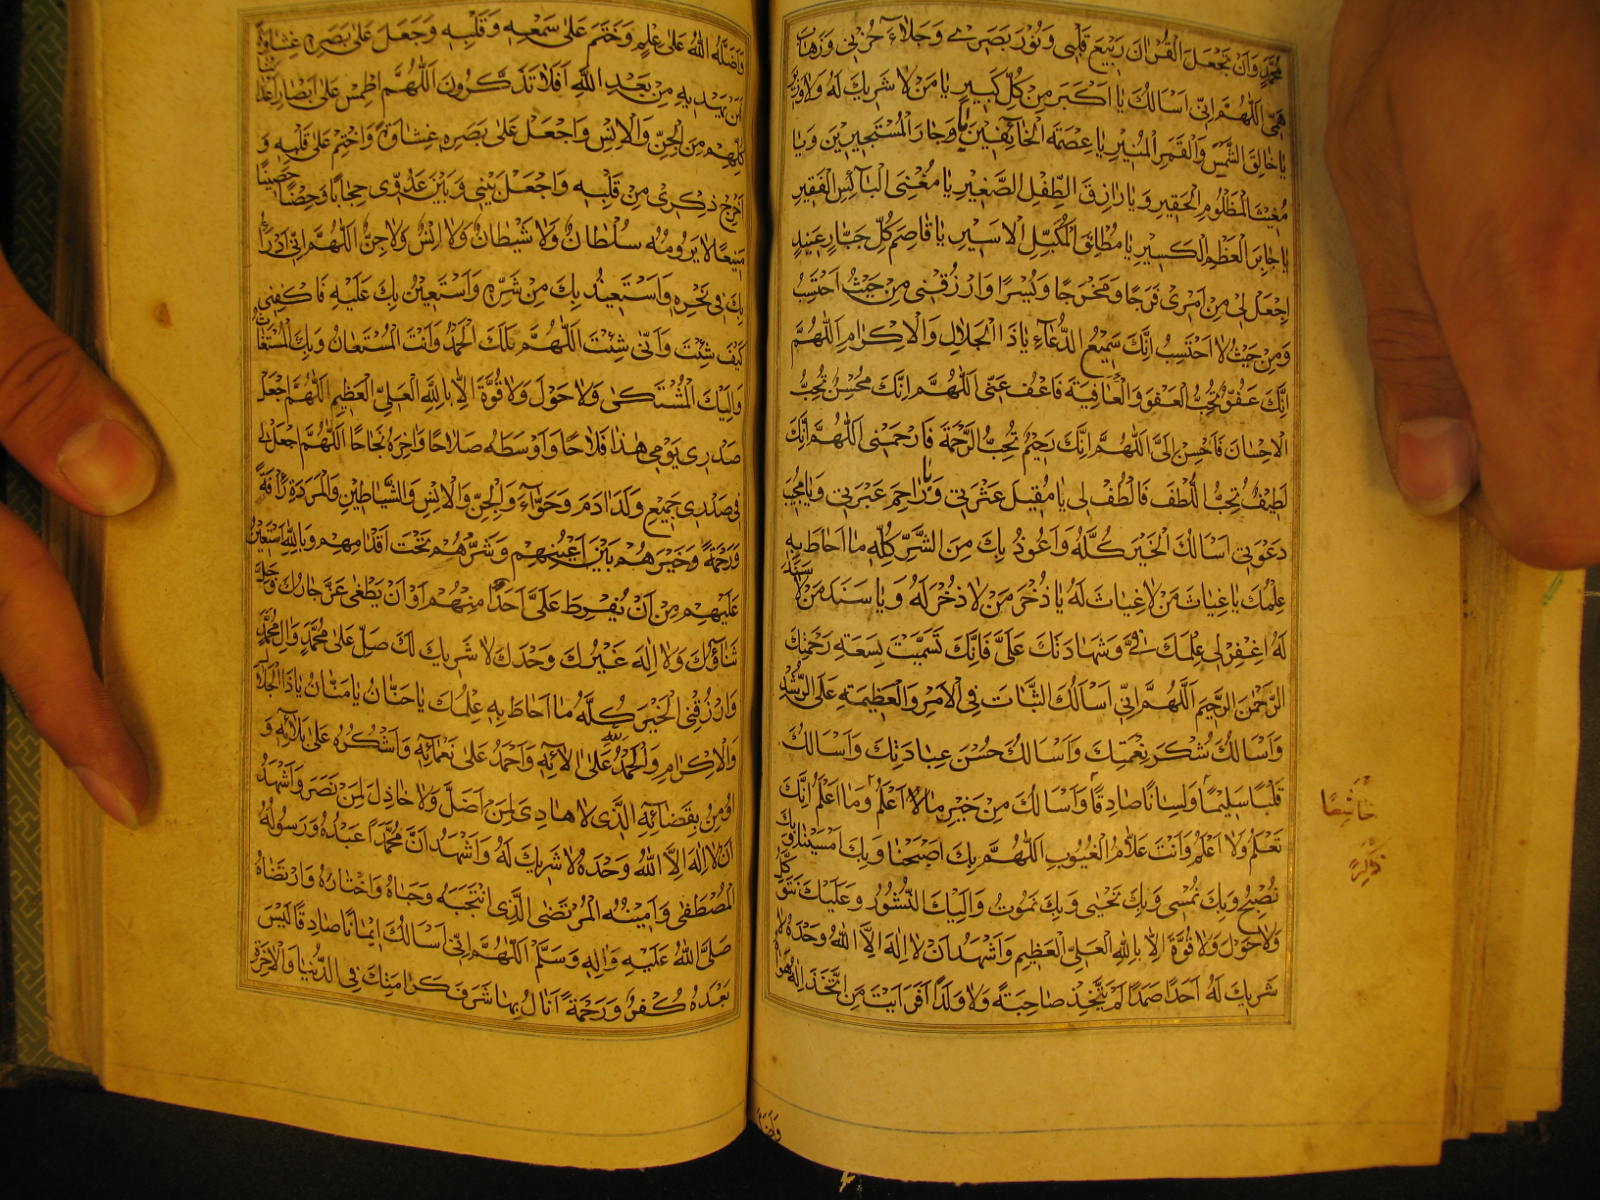 مُحَمَّدٍ وَاَنْ تَجْعَلَ الْقُرْاٰنَ رَبِيعَ قَلْبِى وَنُورَ بَصَرِى وَجَلَاۤءَ حُزْنِى وَذَهَابَ
هَمِّى اَللّٰهُمَّ اِنِّى اَسْاَلُكَ يَا اَكْبَرَ مِنْ كُلِّ كَبِيرٍ يَا مَنْ لَا شَرِيكَ لَهُ وَلَا وَزِيرَ
يَا خَالِقَ الشَّمْسِ وَالْقَمَرِ الْمُنِيرِ يَا عِصْمَةَ الْخَاۤئِفِينَ يَا وَجَارَ الْمُسْتَجِيرِينَ وَيَا
مُغِيثَ الْمَظْلُومِ الْحَقِيرِ وَيَا رَازِقَ الطِّفْلِ الصَّغِيرِ يَا مُغْنِىَ الْبَاۤئِسِ الْفَقِيرِ
يَا جَابِرَ الْعَظْمِ الْكَسِيرِ يَا مُطْلِقَ الْمُكَبَّلِ الْاَسِيرِ يَا قَاصِمَ كُلِّ جَبَّارٍ عَنِيدٍ
اِجْعَلْ لِى مِنْ اَمْرِى فَرَجًا وَمَخْرَجًا وَيُسْرًا وَارْزُقْنِى مِنْ حَيْثُ اَحْتَسِبُ
وَمِنْ حَيْثُ لَا اَحْتَسِبُ اِنَّكَ سَمِيعُ الدُّعَاۤءِ يَا ذَا الْجَلَالِ وَالْاِكْرَامِ اَللّٰهُمَّ
اِنَّكَ عَفُوٌّ تُحِبُّ الْعَفْوَ وَالْعَافِيَةَ فَاعْفُ عَنِّى اَللّٰهُمَّ اِنَّكَ مُحْسِنٌ تُحِبُّ
الْاِحْسَانَ فَاَحْسِنْ اِلَىَّ اَللّٰهُمَّ اِنَّكَ رَحِيمٌ تُحِبُّ الرَّحْمَةَ فَارْحَمْنِى اَللّٰهُمَّ اِنَّكَ
لَطِيفٌ تُحِبُّ اللُّطْفَ فَالْطُفْ لِى يَا مُقِيلَ عَثْرَتِى وَيَا رَاحِمَ عَبْرَتِى وَيَا مُجِيبَ
دَعْوَتِى اَسْاَلُكَ الْخَيْرَ كُلَّهُ وَاَعُوذُ بِكَ مِنَ الشَّرِّ كُلِّهِ مَا اَحَاطَ بِهِ
عِلْمُكَ يَا غِيَاثَ مَنْ لَا غِيَاثَ لَهُ يَا ذُخْرَ مَنْ لَا ذُخْرَ لَهُ وَيَا سَنَدَ مَنْ لَا سَنَدَ
لَهُ اِغْفِرْ لِى عِلْمَكَ فِىَّ وَشَهَادَتَكَ عَلَىَّ فَاِنَّكَ تَسَمَّيْتَ بِسَعَةِ رَحْمَتِكَ
الرَّحْمٰنَ الرَّحِيمَ اَللّٰهُمَّ اِنِّى اَسْاَلُكَ الثَّبَاتَ فِى الْاَمْرِ وَالْعَظِيمَةِ عَلَى الرُّشْدِ
وَاَسْاَلُكَ شُكْرَ نِعْمَتِكَ وَاَسْاَلُكَ حُسْنَ عِبَادَتِكَ وَاَسْاَلُكَ
قَلْبًا سَلِيمًا وَلِسَانًا صَادِقًا وَاَسْاَلُكَ مِنْ خَيْرِ مَا لَا اَعْلَمُ وَمَا اَعْلَمُ اِنَّكَ
خَاشِعًا
ذَاكِرًا
تَعْلَمُ وَلَا اَعْلَمُ وَاَنْتَ عَلَّامُ الْغُيُوبِ اَللّٰهُمَّ بِكَ اَصْبَحْنَا وَبِكَ اَمْسَيْنَا وَبِكَ
نُصْبِحُ وَبِكَ نُمْسِى وَبِكَ نَحْيٰى وَبِكَ نَمُوتُ وَاِلَيْكَ النُّشُورُ وَعَلَيْكَ نَتَوَكَّلُ
وَلَا حَوْلَ وَلَا قُوَّةَ اِلَّا بِاللّٰهِ الْعَلِىِّ الْعَظِيمِ وَاَشْهَدُ اَنْ لَا اِلٰهَ اِلَّا اللّٰهُ وَحْدَهُ لَا
شَرِيكَ لَهُ اَحَدًا صَمَدًا لَمْ يَتَّخِذْ صَاحِبَةً وَلَا وَلَدًا اَفَرَاَيْتَ مَنِ اتَّخَذَ اِلٰهَهُ هَوٰيهُ
وَاَضَلَّهُ
وَاَضَلَّهُ اللّٰهُ عَلٰى عِلْمٍ وَخَتَمَ عَلٰى سَمْعِهِ وَقَلْبِهِ وَجَعَلَ عَلٰى بَصَرِهِ غِشَاوَةً
فَمَنْ يَهْدِيهِ مِنْ بَعْدِ اللّٰهِ اَفَلَا تَذَكَّرُونَ اَللّٰهُمَّ اطْمِسْ عَلٰى اَبْصَارِ اَعْدَائِنَا
كُلِّهِمْ مِنَ الْجِنِّ وَالْاِنْسِ وَاجْعَلْ عَلٰى بَصَرِهِ غِشَاوَةً وَاخْتِمْ عَلٰى قَلْبِهِ وَ
اَخْرِجْ ذِكْرِى مِنْ قَلْبِهِ وَاجْعَلْ بَيْنِى وَبَيْنَ عَدُوِّى حِجَابًا وَحِصْنًا حَصِينًا
مَنِيعًا لَا يَرُومُهُ سُلْطَانٌ وَلَا شَيْطَانٌ وَلَا اِنْسٌ وَلَا جِنٌّ اَللّٰهُمَّ اِنِّى اَدْرَاُ
بِكَ فِى نَحْرِهِ وَاَسْتَعِيذُ بِكَ مِنْ شَرِّهِ وَاَسْتَعِينُ بِكَ عَلَيْهِ فَاكْفِنِى
كَيْفَ شِئْتَ وَاَنّٰى شِئْتَ اَللّٰهُمَّ لَكَ الْحَمْدُ وَاَنْتَ الْمُسْتَعَانُ وَبِكَ الْمُسْتَغَاثُ
وَاِلَيْكَ الْمُشْتَكٰى وَلَا حَوْلَ وَلَا قُوَّةَ اِلَّا بِاللّٰهِ الْعَلِىِّ الْعَظِيمِ اَللّٰهُمَّ اجْعَلْ
صَدْرَ يَوْمِى هٰذَا فَلَاحًا وَاَوْسَطَهُ صَلَاحًا وَاٰخِرَهُ نَجَاحًا اَللّٰهُمَّ اجْعَلْ لِى
فِى صَدْرِ جَمِيعِ وَلَدِ اٰدَمَ وَحَوَّاۤءَ وَالْجِنِّ وَالْاِنْسِ وَالشَّيَاطِينِ وَالْمَرَدَةِ رَأْفَةً
وَرَحْمَةً وَخَيْرَهُمْ بَيْنَ اَعْيُنِهِمْ وَشَرَّهُمْ تَحْتَ اَقْدَامِهِمْ وَبِاللّٰهِ اَسْتَعِينُ
عَلَيْهِمْ مِنْ اَنْ يُفْرِطَ عَلَىَّ اَحَدٌ مِنْهُمْ اَوْ اَنْ يَطْغٰى عَزَّ جَارُكَ وَجَلَّ
ثَنَاۤؤُكَ وَلَا اِلٰهَ غَيْرُكَ وَحْدَكَ لَا شَرِيكَ لَكَ صَلِّ عَلٰى مُحَمَّدٍ وَاٰلِ مُحَمَّدٍ
وَارْزُقْنِى الْخَيْرَ كُلَّهُ مَا اَحَاطَ بِهِ عِلْمُكَ يَا حَنَّانُ يَا مَنَّانُ يَا ذَا الْجَلَالِ
وَالْاِكْرَامِ وَالْحَمْدُ لِلّٰهِ عَلٰى اٰلَاۤئِهِ وَاَحْمَدُ عَلٰى نَعْمَاۤئِهِ وَاَشْكُرُهُ عَلٰى بَلَاۤئِهِ وَ
اُومِنُ بِقَضَاۤئِهِ الَّذِى لَا هَادِىَ لِمَنْ اَضَلَّ وَلَا خَاذِلَ لِمَنْ نَصَرَ وَاَشْهَدُ
اَنْ لَا اِلٰهَ اِلَّا اللّٰهُ وَحْدَهُ لَا شَرِيكَ لَهُ وَاَشْهَدُ اَنَّ مُحَمَّدًا عَبْدُهُ وَرَسُولُهُ
الْمُصْطَفٰى وَاَمِينُهُ الْمُرْتَضٰى الَّذِى انْتَجَبَهُ وَحَبَاهُ وَاخْتَارَهُ وَارْتَضَاهُ
صَلَّى اللّٰهُ عَلَيْهِ وَاٰلِهِ وَسَلَّمَ اَللّٰهُمَّ اِنِّى اَسْاَلُكَ اِيْمَانًا صَادِقًا لَيْسَ
بَعْدَهُ كُفْرٌ وَرَحْمَةً اَنَالُ بِهَا شَرَفَ كَرَامَتِكَ فِى الدُّنْيَا وَالْاٰخِرَةِ